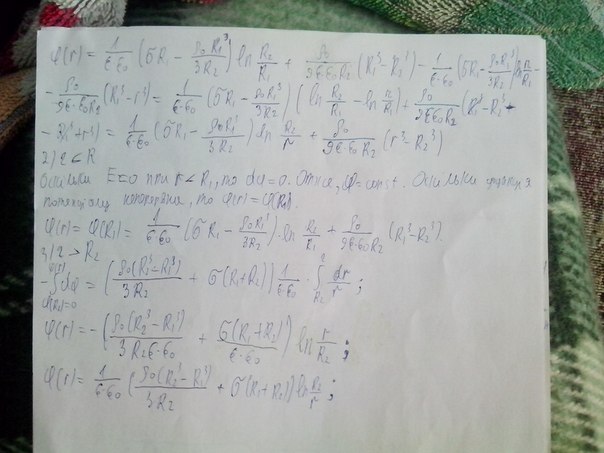 φ(r) = 1/(ε·ε₀) (σR₁ − ρ₀R₁³/(3R₂)) ln R₂/R₁ + ρ₀/(9ε·ε₀R₂) (R₁³−R₂³) − 1/(ε·ε₀) (σR₁ − ρ₀R₁³/(3R₂)) ln r/R₁ −
− ρ₀/(9ε·ε₀R₂) (R₁³−r³) = 1/(ε·ε₀) (σR₁ − ρ₀R₁³/(3R₂)) (ln R₂/R₁ − ln r/R₁) + ρ₀/(9ε·ε₀R₂) (R₁³−R₂³−
− R₁³+r³) = 1/(ε·ε₀) (σR₁ − ρ₀R₁³/(3R₂)) ln R₂/r + ρ₀/(9ε·ε₀R₂) (r³−R₂³)
2) r < R
Оскільки E=0 при r<R₁, то dφ=0. Отже, φ=const. Оскільки функція
потенціалу неперервна, то φ(r)=φ(R₁).
φ(r) = φ(R₁) = 1/(ε·ε₀) (σR₁ − ρ₀R₁³/(3R₂)) · ln R₂/R₁ + ρ₀/(9ε·ε₀R₂) (R₁³−R₂³).
3) r > R₂
−∫dφ = (ρ₀(R₂³−R₁³)/(3R₂) + σ(R₁+R₂)) 1/(ε·ε₀) · ∫ dr/r ;
φ(r) = −(ρ₀(R₂³−R₁³)/(3R₂ε·ε₀) + σ(R₁+R₂)/(ε·ε₀)) ln r/R₂ ;
φ(r) = 1/(ε·ε₀) (ρ₀(R₂³−R₁³)/(3R₂) + σ(R₁+R₂)) ln R₂/r ;